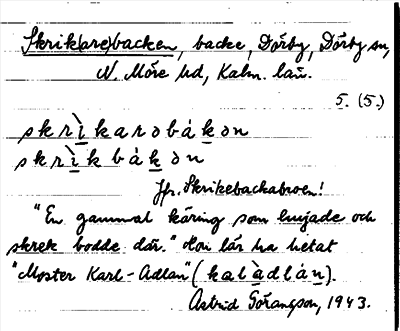 Skrik(are)backen, backe, Dörby, Dörby sn,
N. Möre hd, Kalm. län.
5. (5.)
skrìkarəbákən
skrìkbákən
Jfr. Skrikebackabroen!
"En gammal käring som hujade och
skrek bodde där." Hon lär ha hetat
"Moster Karl-Adlan" (kalàdlán).
Astrid Göransson, 1943.